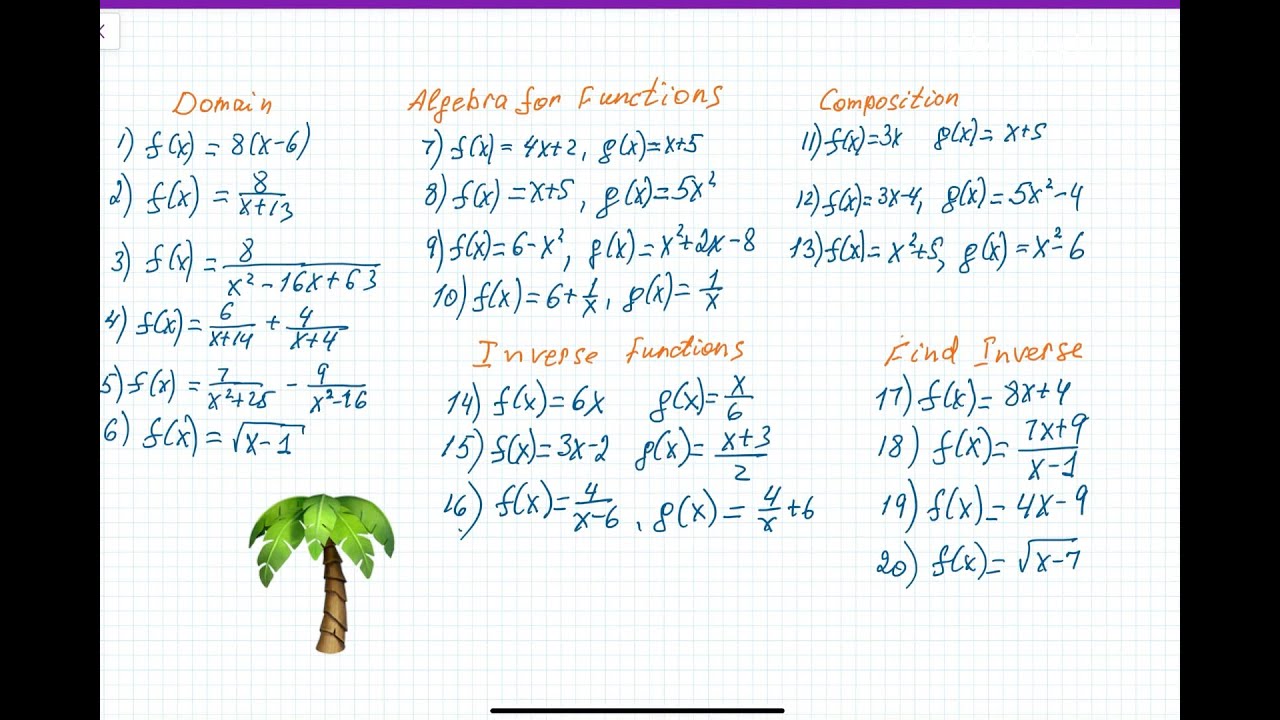 Domain
1) f(x) = 8(x-6)
2) f(x) = 8/(x+13)
3) f(x) = 8/(x²-16x+63)
4) f(x) = 6/(x+14) + 4/(x+4)
5) f(x) = 7/(x²+25) - 9/(x²-16)
6) f(x) = √(x-1)
Algebra for Functions
7) f(x) = 4x+2, g(x)=x+5
8) f(x) = x+5, g(x)=5x²
9) f(x) = 6-x², g(x) = x²+2x-8
10) f(x) = 6+1/x, g(x) = 1/x
Composition
11) f(x)=3x g(x) = x+5
12) f(x)=3x-4, g(x) = 5x²-4
13) f(x) = x²+5, g(x) = x²-6
Inverse functions
14) f(x) = 6x g(x) = x/6
15) f(x) = 3x-2 g(x) = (x+3)/2
16) f(x) = 4/(x-6), g(x) = 4/x+6
Find Inverse
17) f(x) = 8x+4
18) f(x) = (7x+9)/(x-1)
19) f(x) = 4x-9
20) f(x) = √(x-7)